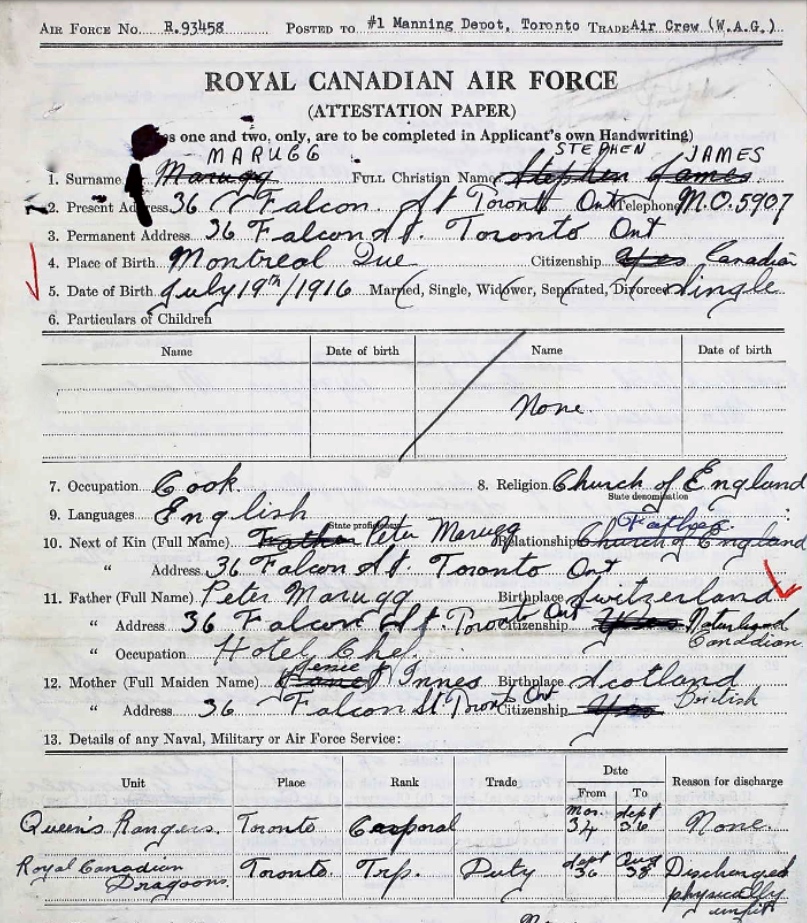 AIR FORCE NO. R.93458 POSTED TO #1 Manning Depot, Toronto TRADE Air Crew (W.A.G.)
ROYAL CANADIAN AIR FORCE
(ATTESTATION PAPER)
es one and two, only, are to be completed in Applicant's own Handwriting)
MARUGG STEPHEN JAMES
1. Surname Marugg FULL Christian Name Stephen James
2. Present Address 36 Falcon St Toronto Ont Telephone M.O.5907
3. Permanent Address 36 Falcon St. Toronto Ont
4. Place of Birth Montreal Que Citizenship Yes Canadian
5. Date of Birth July 19th/1916 Married, Single, Widower, Separated, Divorced Single
6. Particulars of Children
Name Date of birth Name Date of birth
None.
7. Occupation Cook 8. Religion Church of England
State denomination
9. Languages English
State proficiency Father
10. Next of Kin (Full Name) Father Peter Marugg Relationship Church of England
" Address 36 Falcon St. Toronto Ont
11. Father (Full Name) Peter Marugg Birthplace Switzerland
" Address 36 Falcon St. Toronto Ont Citizenship Yes Naturalized Canadian
" Occupation Hotel Chef
12. Mother (Full Maiden Name) Innes Birthplace Scotland
" Address 36 Falcon St Toronto Ont Citizenship Yes British
13. Details of any Naval, Military or Air Force Service:
Unit Place Rank Trade Date Reason for discharge
From To
Queen's Rangers. Toronto Corporal Mar. 34 Sept 36 None.
Royal Canadian Dragoons. Toronto. Trp. Duty Sept 36 Aug 38 Discharged physically unfit